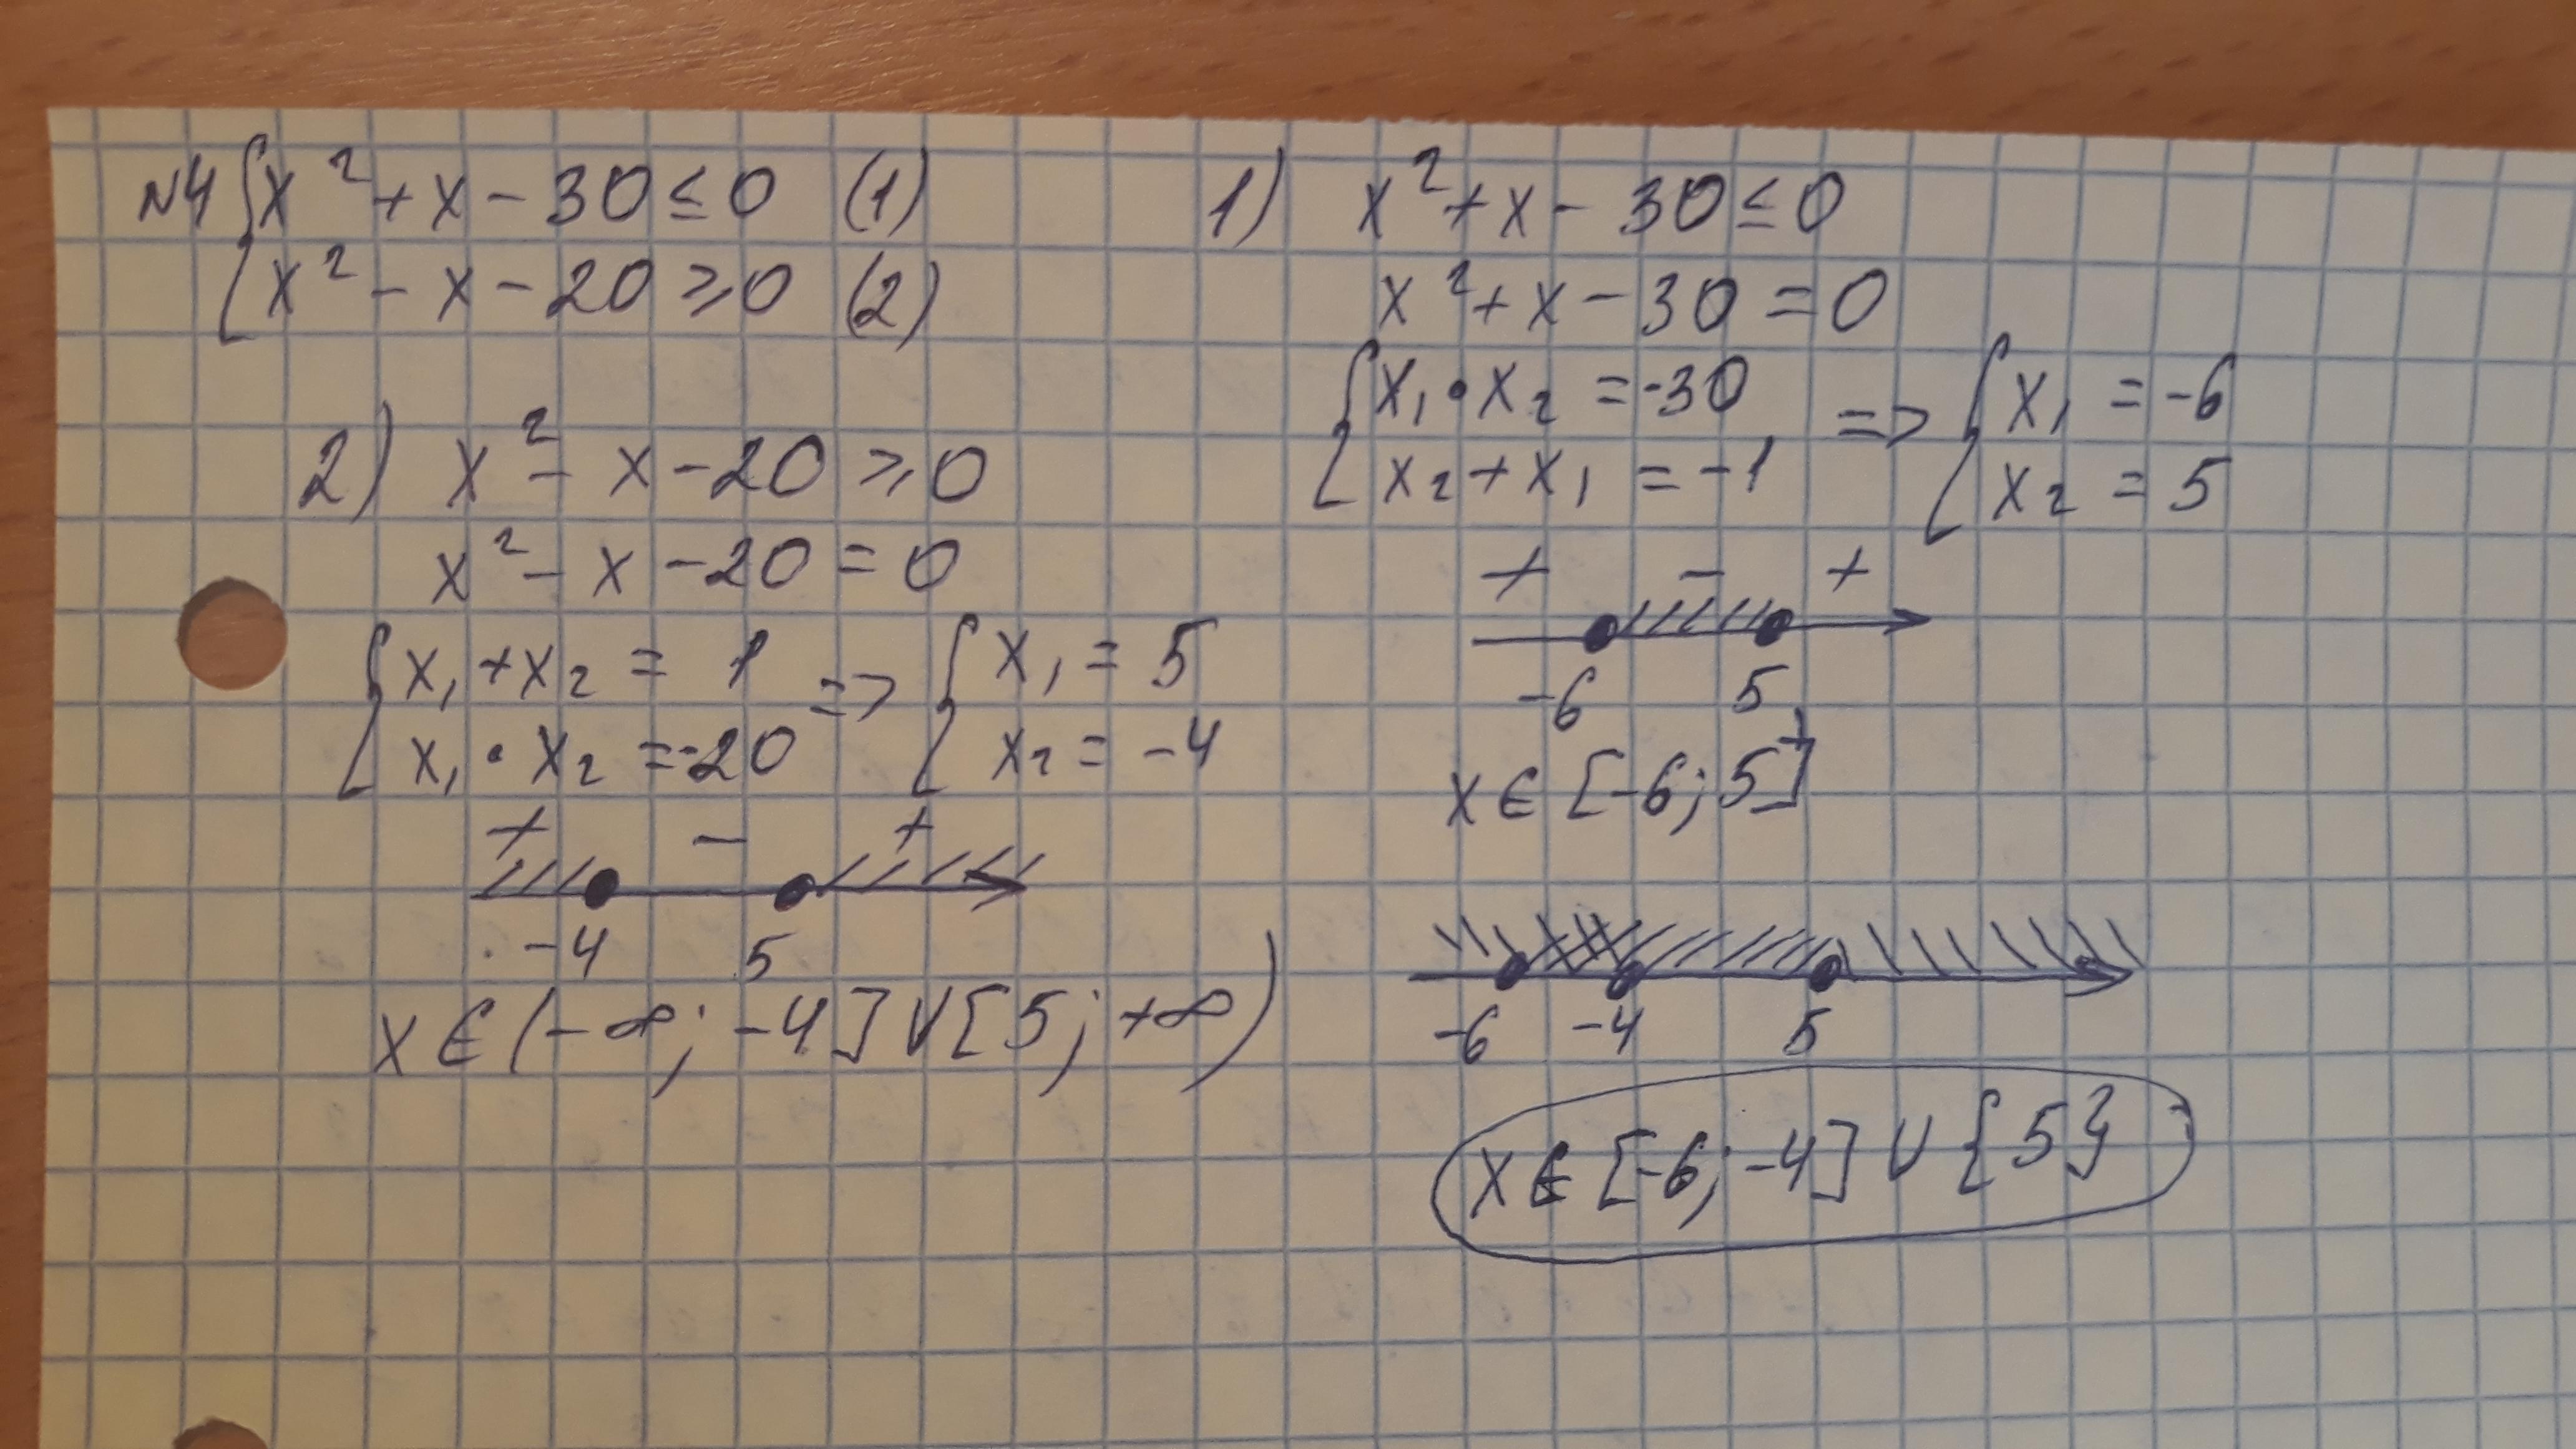 N4 { x² + x - 30 ≤ 0 (1)
{ x² - x - 20 ⩾ 0 (2)
1) x² + x - 30 ≤ 0
x² + x - 30 = 0
{ x₁ • x₂ = -30
{ x₂ + x₁ = -1
=> { x₁ = -6
{ x₂ = 5
+ - +
-6 5
x ∈ [-6; 5]
2) x² - x - 20 ⩾ 0
x² - x - 20 = 0
{ x₁ + x₂ = 1
{ x₁ • x₂ = -20
=> { x₁ = 5
{ x₂ = -4
+ - +
-4 5
x ∈ (-∞; -4] ∪ [5; +∞)
-6 -4 5
x ∈ [-6; -4] ∪ {5}